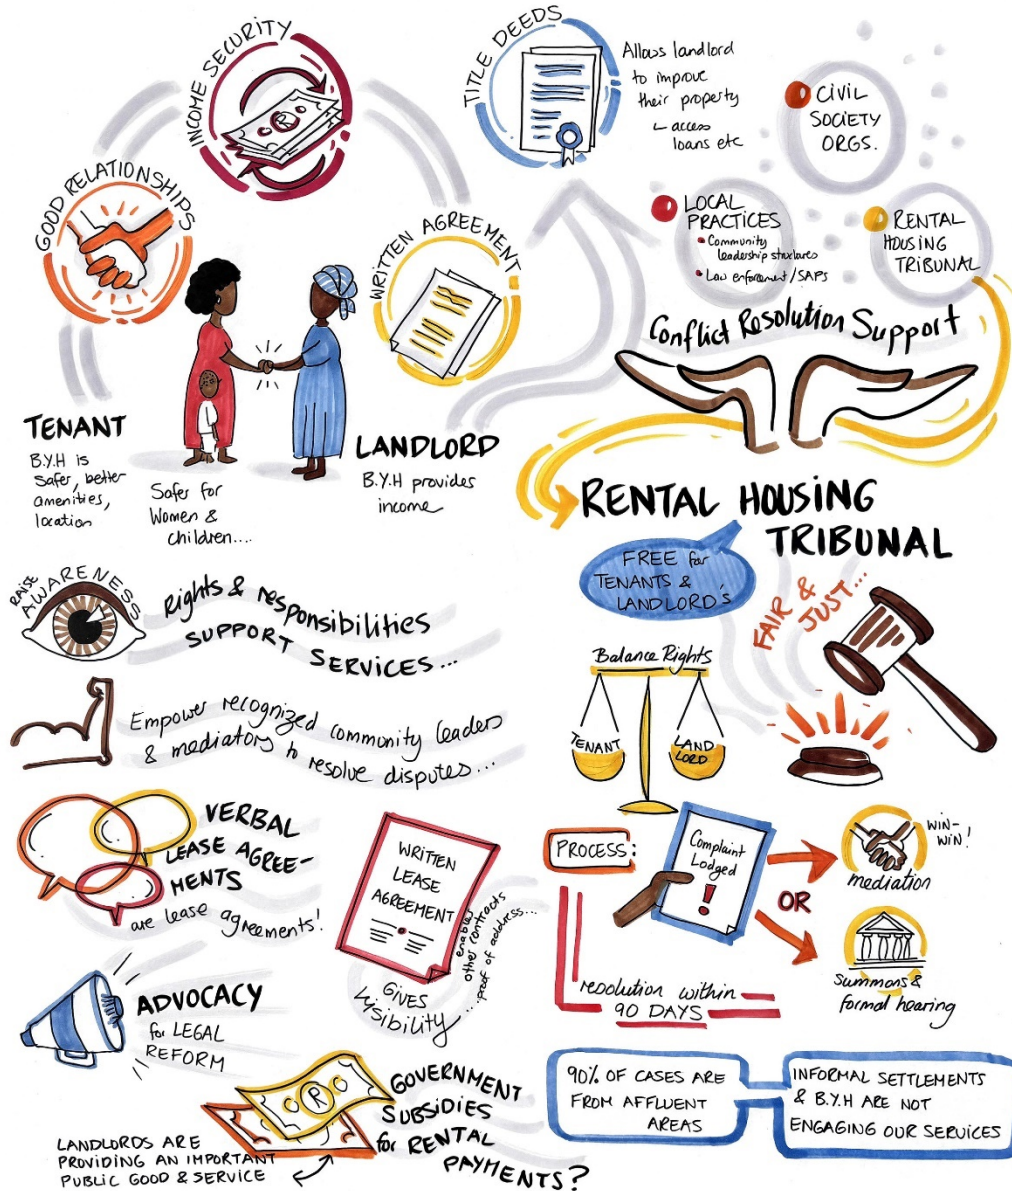 GOOD RELATIONSHIPS
INCOME SECURITY
R
WRITTEN AGREEMENT
TITLE DEEDS
Allows landlord
to improve
their property
access
loans etc
CIVIL
SOCIETY
ORGS.
LOCAL
PRACTICES
Community
leadership structures
Law enforcement/SAPs
RENTAL
HOUSING
TRIBUNAL
Conflict Resolution Support
TENANT
B.Y.H is
Safer, better
amenities,
location
Safer for
Women &
children....
LANDLORD
B.Y.H provides
income
RENTAL HOUSING
TRIBUNAL
FREE for
TENANTS &
LANDLORD'S
FAIR &
JUST...
Balance Rights
TENANT
LAND
LORD
RAISE
AWARENESS
Rights & responsibilities
SUPPORT SERVICES...
Empower recognized community leaders
& mediators to resolve disputes...
VERBAL
LEASE AGREE-
MENTS
are lease agreements!
WRITTEN
LEASE
AGREEMENT
GIVES
VISIBILITY
enables
other contracts
...proof of address...
PROCESS:
Complaint
Lodged
!
OR
WIN-
WIN!
mediation
summons &
formal hearing
resolution within
90 DAYS
ADVOCACY
for LEGAL
REFORM
R
GOVERNMENT
SUBSIDIES
for RENTAL
PAYMENTS?
LANDLORDS ARE
PROVIDING AN IMPORTANT
PUBLIC GOOD & SERVICE
90% OF CASES ARE
FROM AFFLUENT
AREAS
INFORMAL SETTLEMENTS
& B.Y.H ARE NOT
ENGAGING OUR SERVICES